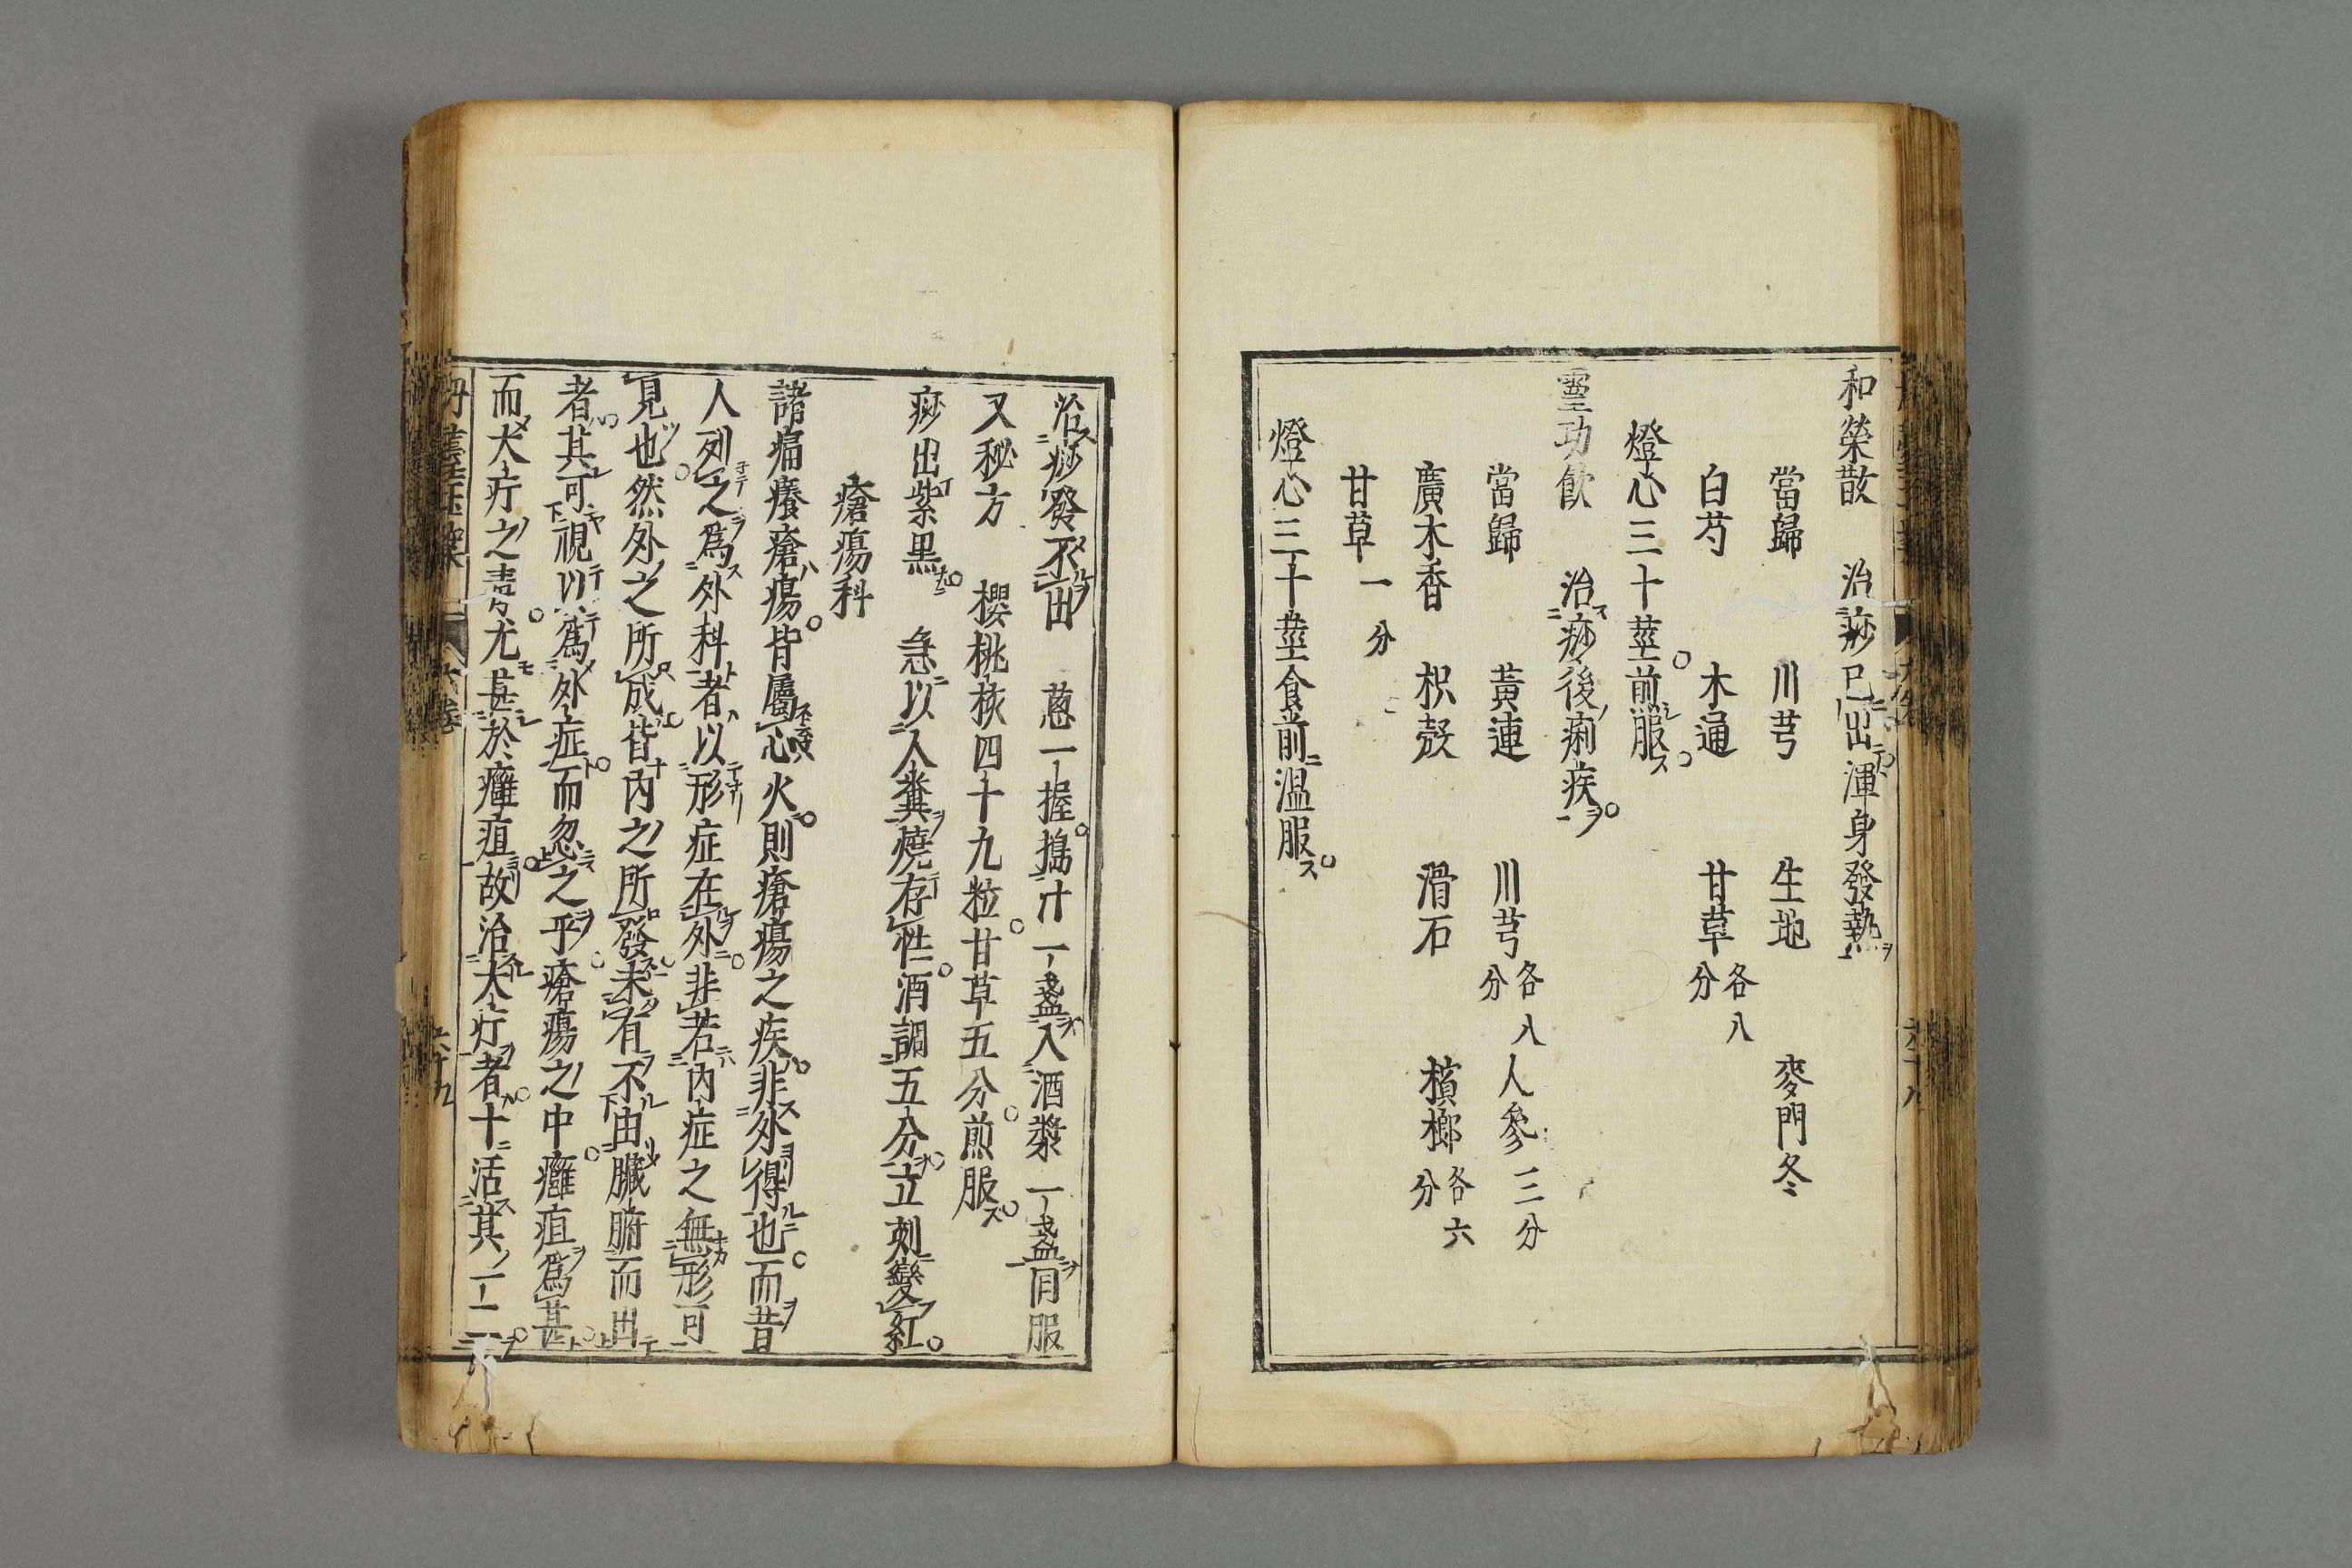 和榮散　治痧已出渾身發熱
當歸　川芎　生地　麥門冬
白芍　木通　甘草各八分
燈心三十莖煎服
靈功飲　治痧後痢疾
當歸　黃連　川芎各八分　人參三分
廣木香　枳殼　滑石　檳榔各六分
甘草一分
燈心三十莖食前溫服
治痧發不出　葱一握搗汁一盞入酒漿一盞同服
又秘方　櫻桃核四十九粒甘草五分煎服
痧出紫黑　急以人糞燒存性酒調五分立刻變紅
瘡瘍科
諸痛癢瘡瘍皆屬心火則瘡瘍之疾非外得也而昔
人列之爲外科者以形症在外非若內症之無形可
見也然外之所成皆內之所發未有不由臟腑而出
者其可視以爲外症而忽之乎瘡瘍之中癰疽爲甚
而大疔之毒尤甚於癰疽故治大疔者十活其一二
六十九